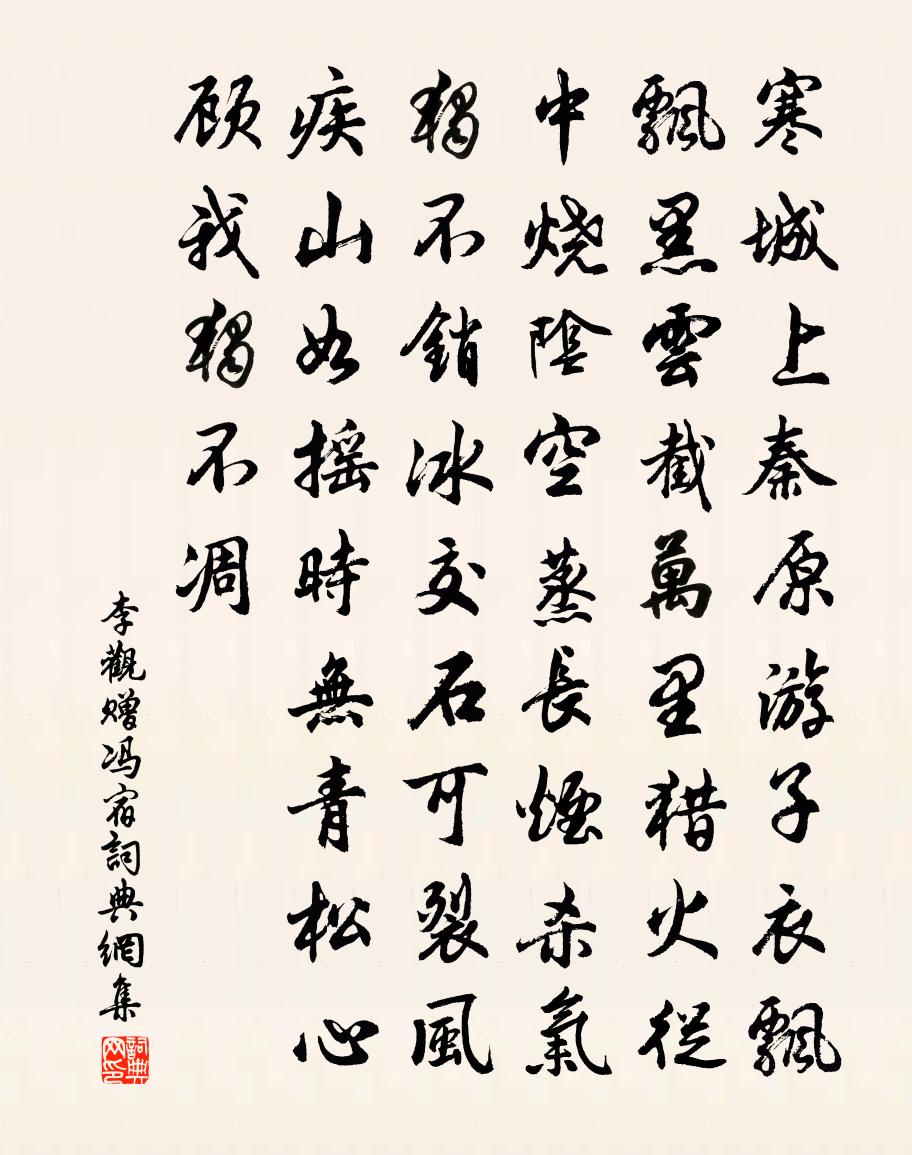 寒城上秦原游子衣飄
飄黑雲截萬里猎火從
中燒陰空蒸長煙杀氣
獨不銷冰交石可裂風
疾山如摇時無青松心
顾我獨不凋
李觀赠冯宿詞典網集
詞典网印